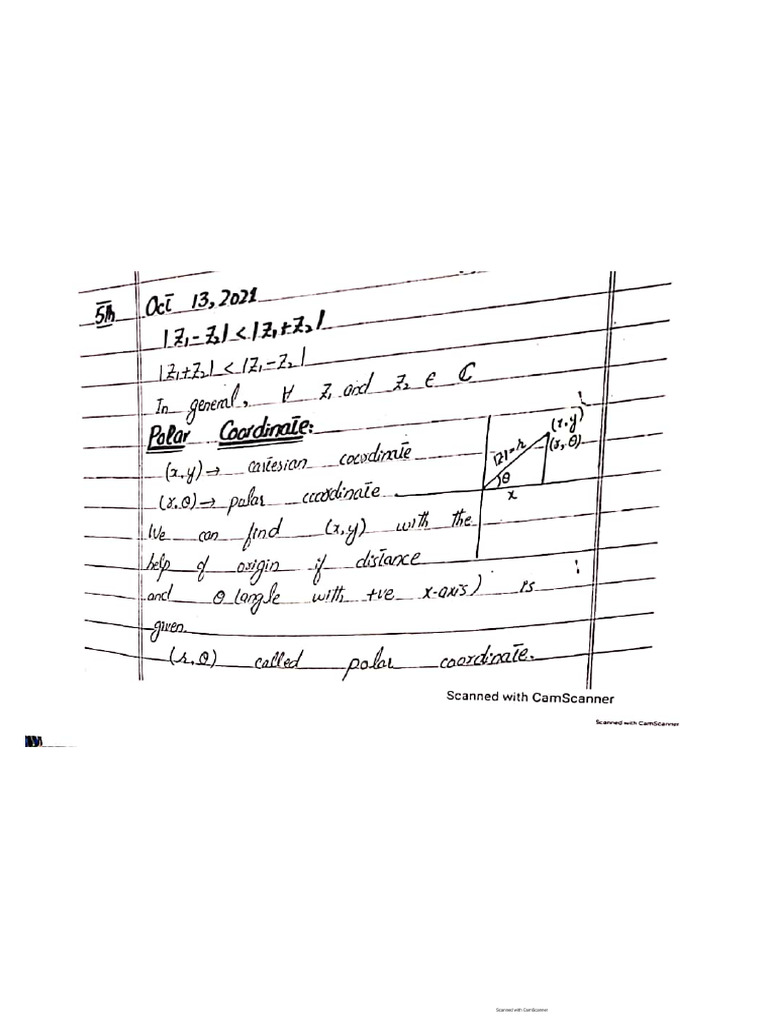 5th Oct 13, 2021
|Z₁ - Z₂| < |Z₁ + Z₂|
|Z₁ + Z₂| < |Z₁ - Z₂|
In general, ∀ Z₁ and Z₂ ∈ ℂ
Polar Coordinate:
(x,y) → cartesian coordinate
(r,θ) → polar coordinate
|z| = r
(x,y)
(r,θ)
θ
x
We can find (x,y) with the
help of origin if distance
and θ (angle with +ve x-axis) is
given
(r,θ) called polar coordinate.
Scanned with CamScanner
Scanned with CamScanner
Scanned with CamScanner